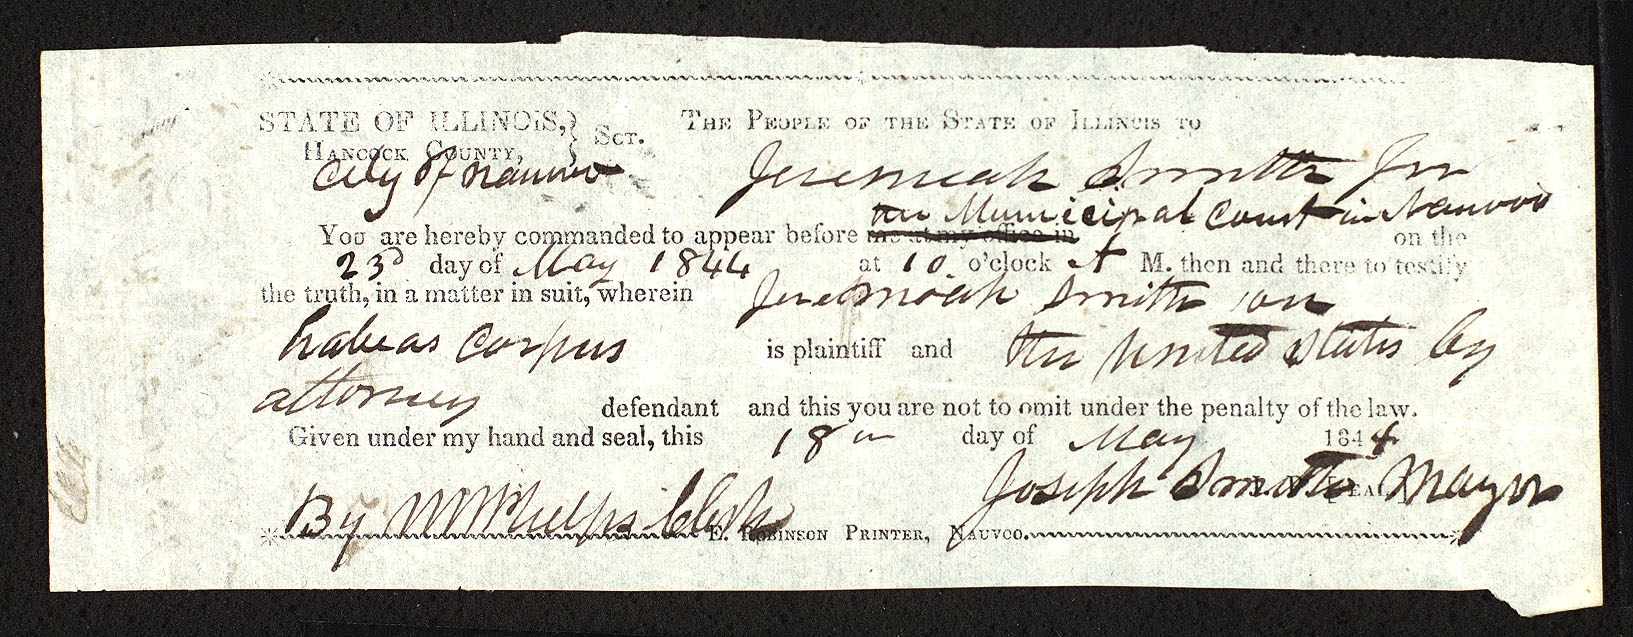 STATE OF ILLINOIS,} Sct. THE PEOPLE OF THE STATE OF ILLINOIS TO
HANCOCK COUNTY,
City of Nauvoo Jeremiah Smith Jur
the Municipal Court in Nauvoo
You are hereby commanded to appear before me at my office in on the
23d day of May 1844 at 10 o'clock A M. then and there to testify
the truth, in a matter in suit, wherein Jeremiah Smith on
habeas corpus is plaintiff and the United States by
attorney defendant and this you are not to omit under the penalty of the law.
Given under my hand and seal, this 18th day of May 1844
Joseph Smith Mayor
By W W Phelps Clerk
E. ROBINSON PRINTER, NAUVOO.